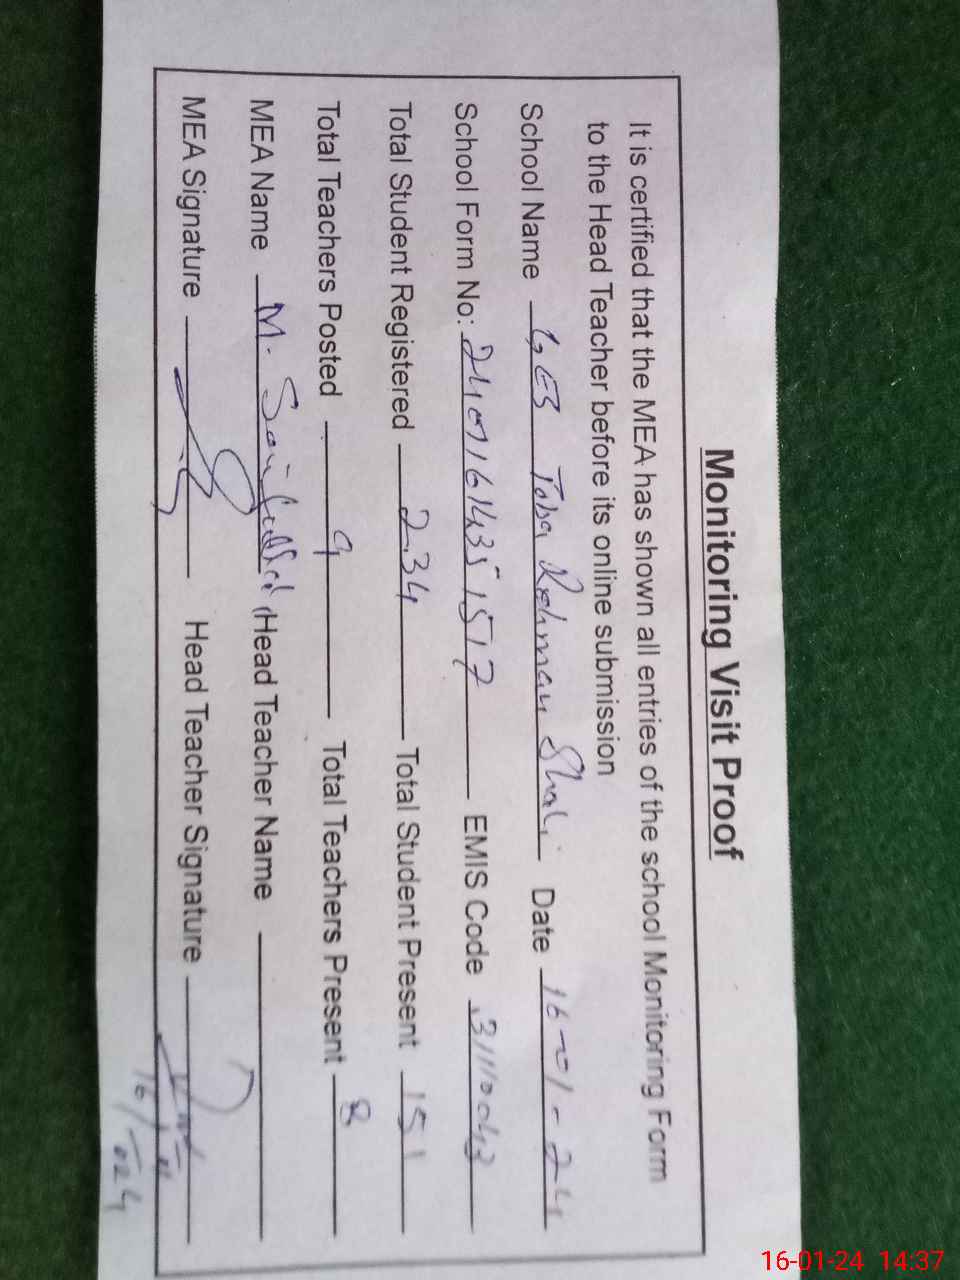 Monitoring Visit Proof
It is certified that the MEA has shown all entries of the school Monitoring Form
to the Head Teacher before its online submission
School Name GES Toba Rehman Shah Date 16-01-24
School Form No: EMIS Code
Total Student Registered 234 Total Student Present 151
Total Teachers Posted 9 Total Teachers Present 8
MEA Name M. Head Teacher Name
MEA Signature Head Teacher Signature
16-01-24 14:37